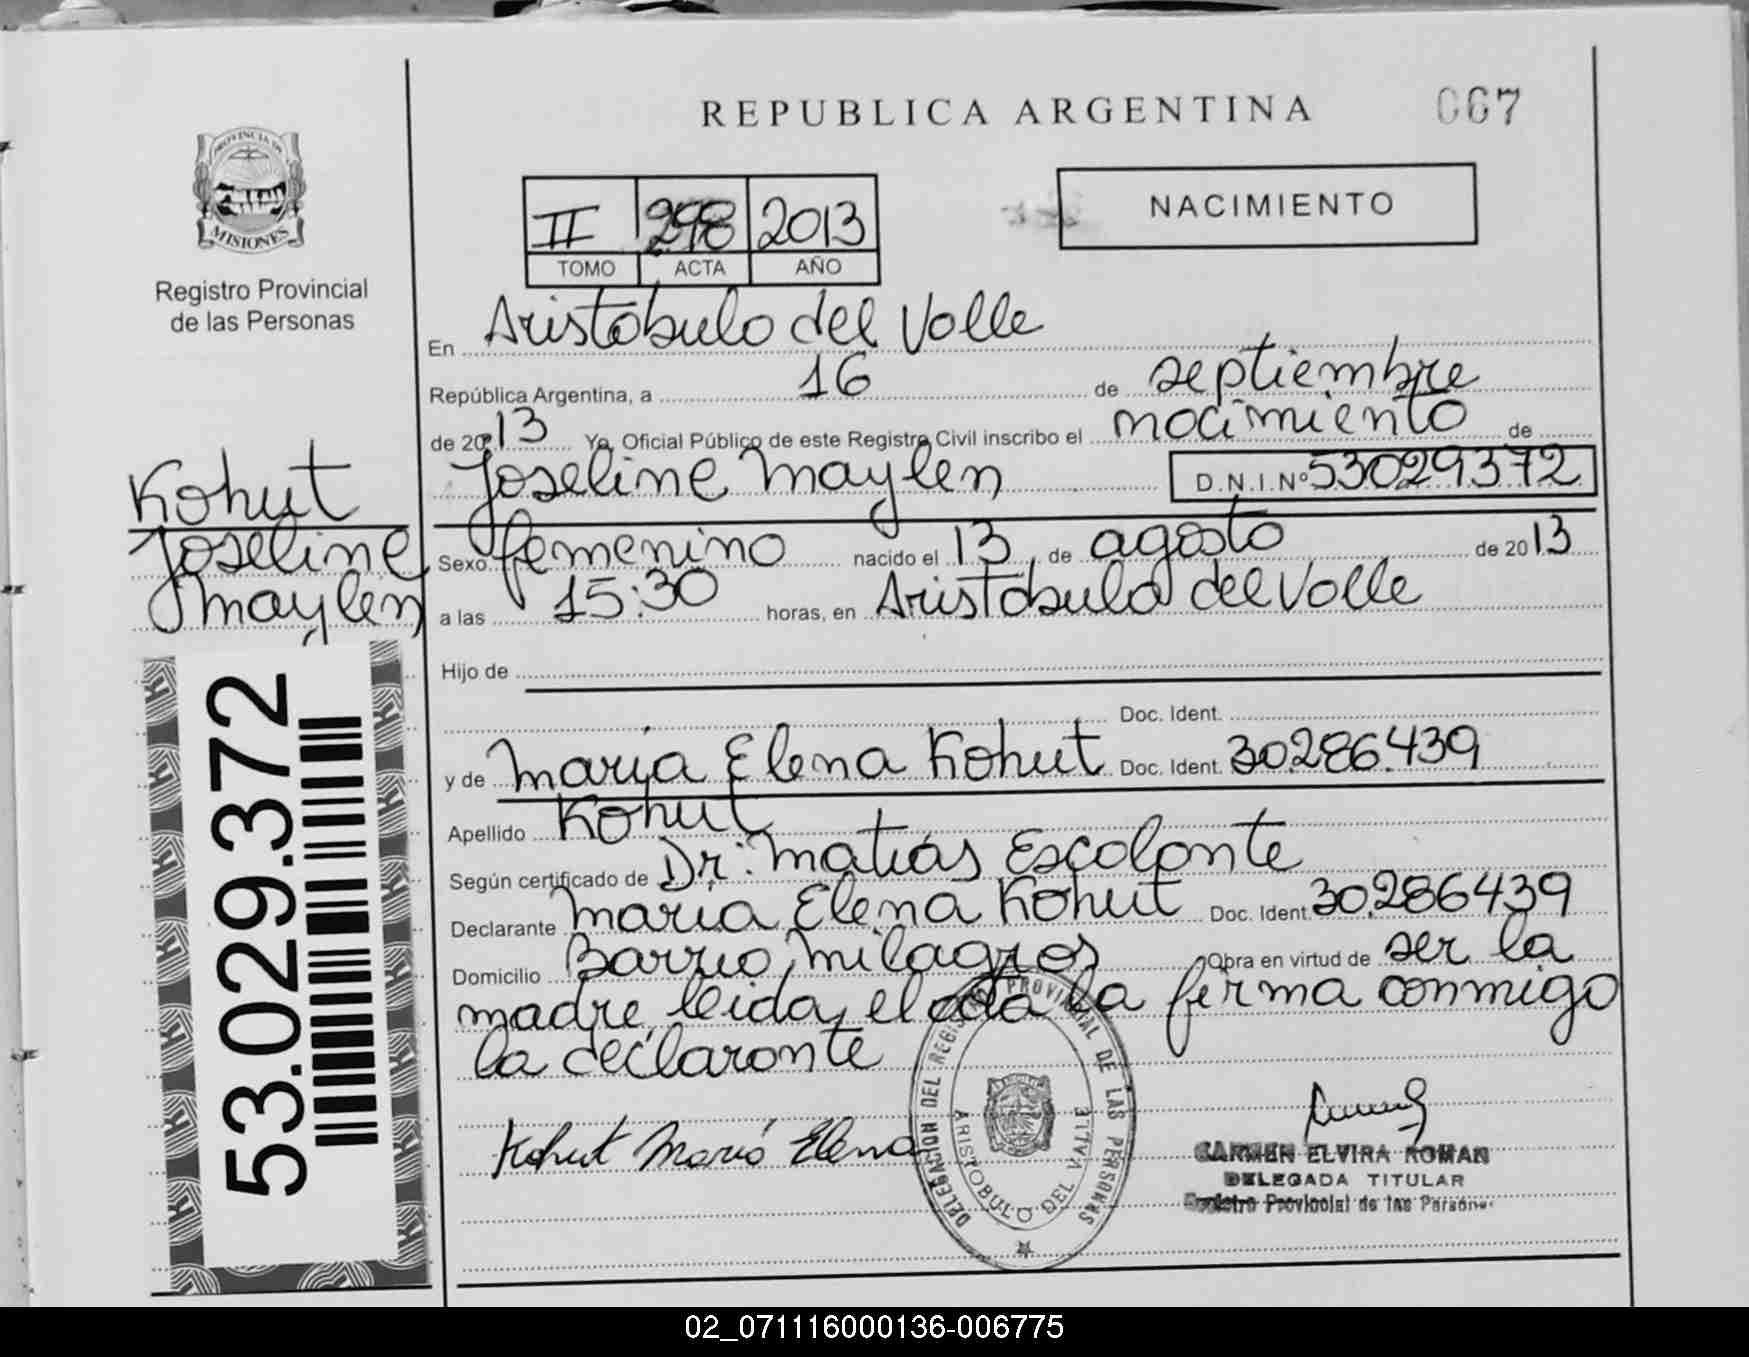 REPUBLICA ARGENTINA
067
PROVINCIA DE
MISIONES
Registro Provincial
de las Personas
II 298 2013
TOMO ACTA AÑO
NACIMIENTO
En Aristobulo del Valle
República Argentina, a 16 de septiembre
de 2013 Yo, Oficial Público de este Registro Civil inscribo el nacimiento de
Joseline Maylen D.N.I.Nº 53029372
Kohut
Joseline
Maylen
Sexo femenino nacido el 13 de agosto de 2013
a las 15:30 horas, en Aristobulo del Valle
Hijo de
Doc. Ident.
y de Maria Elena Kohut Doc. Ident. 30.286.439
Apellido Kohut
Según certificado de Dr. Matias Escalante
Declarante Maria Elena Kohut Doc. Ident. 30.286439
Domicilio Barrio Milagros Obra en virtud de ser la
madre, leida el acta la firma conmigo
la declarante
53.029.372
Kohut Maria Elena
DELEGACION DEL REGISTRO PROVINCIAL DE LAS PERSONAS
ARISTOBULO DEL VALLE
CARMEN ELVIRA ROMAN
DELEGADA TITULAR
Registro Provincial de las Personas
02_071116000136-006775